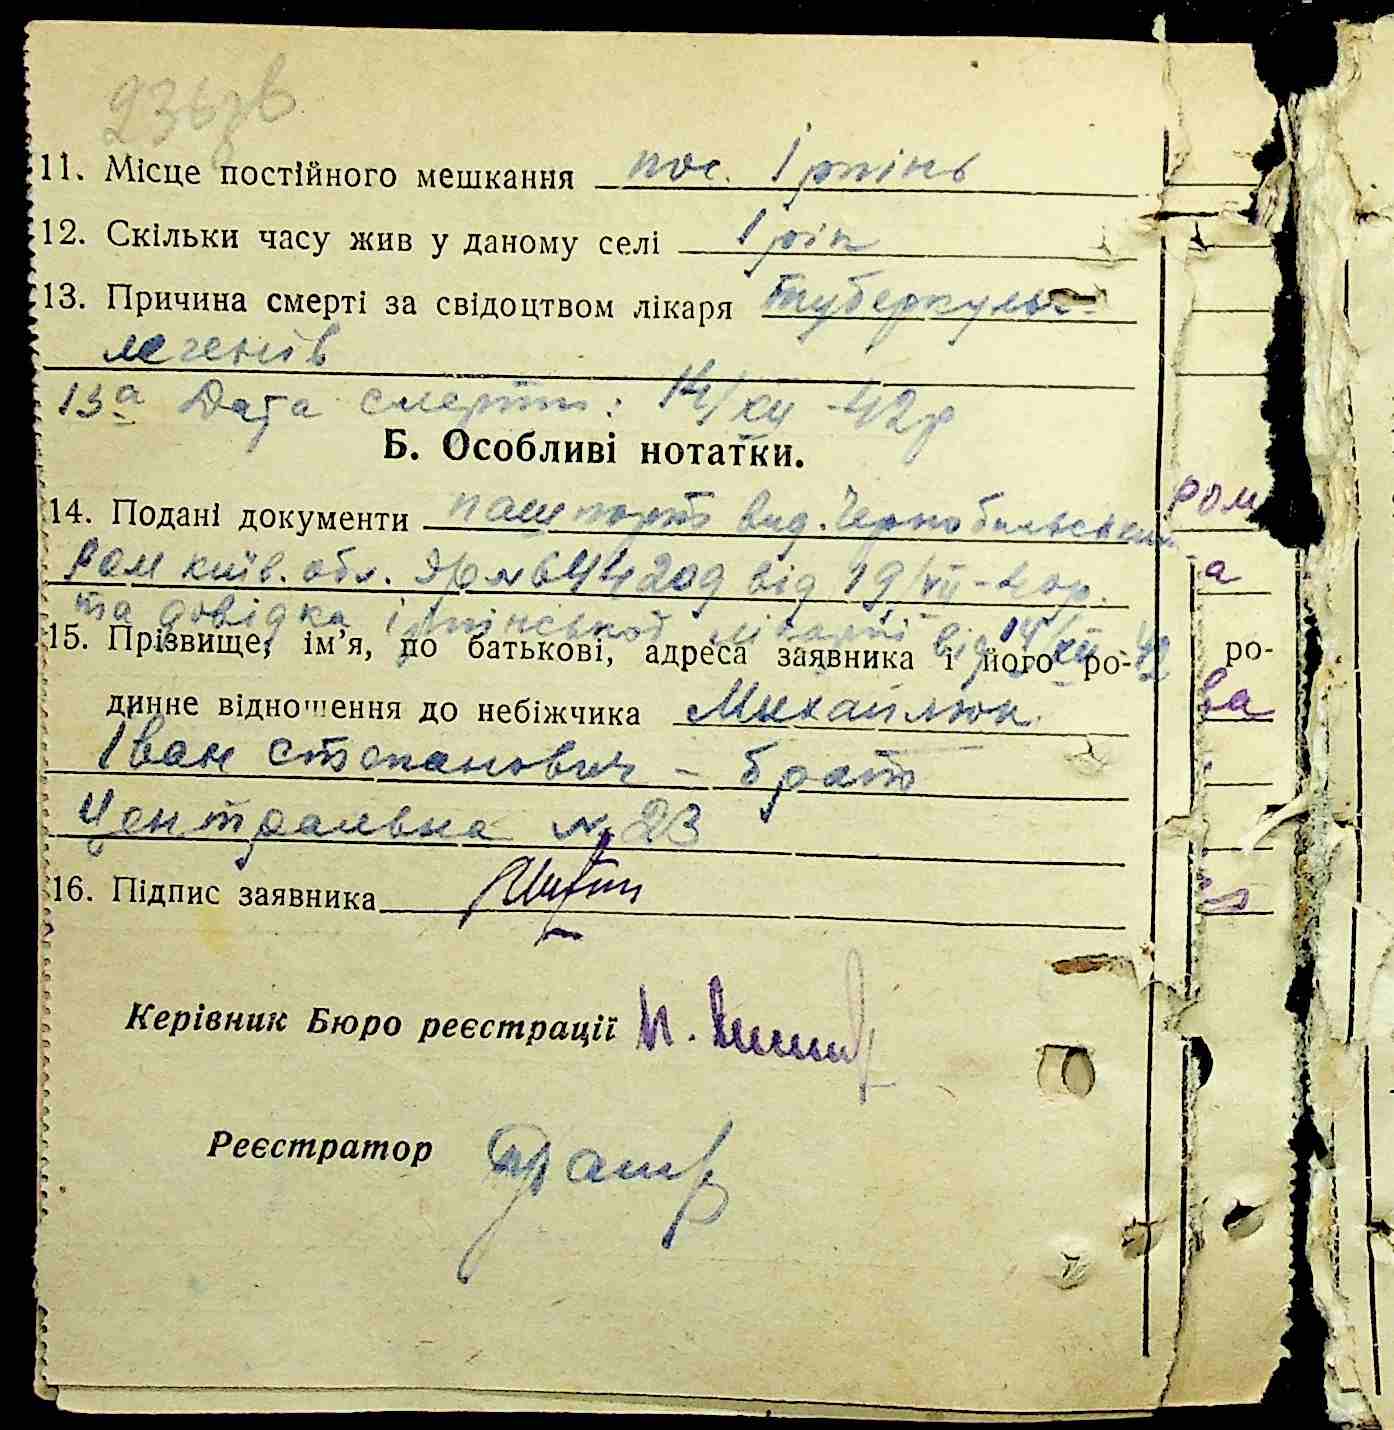 236зв
11. Місце постійного мешкання пос. Ірпінь
12. Скільки часу жив у даному селі 1 рік
13. Причина смерті за свідоцтвом лікаря туберкульоз
легенів
13а Дата смерти: 14/XII 42р
Б. Особливі нотатки.
14. Подані документи пашпорт вид. Чорнобильським
РОМ київ. обл. № 644209 від 19/VII-40р.
та довідка ірпінської лікарні від 14/XII 42
15. Прізвище, ім’я, по батькові, адреса заявника і його ро-
динне відношення до небіжчика Михайлюк
Іван Степанович – брат
Центральна № 23
16. Підпис заявника
Керівник Бюро реєстрації
Реєстратор
ром
а
ро-
ва